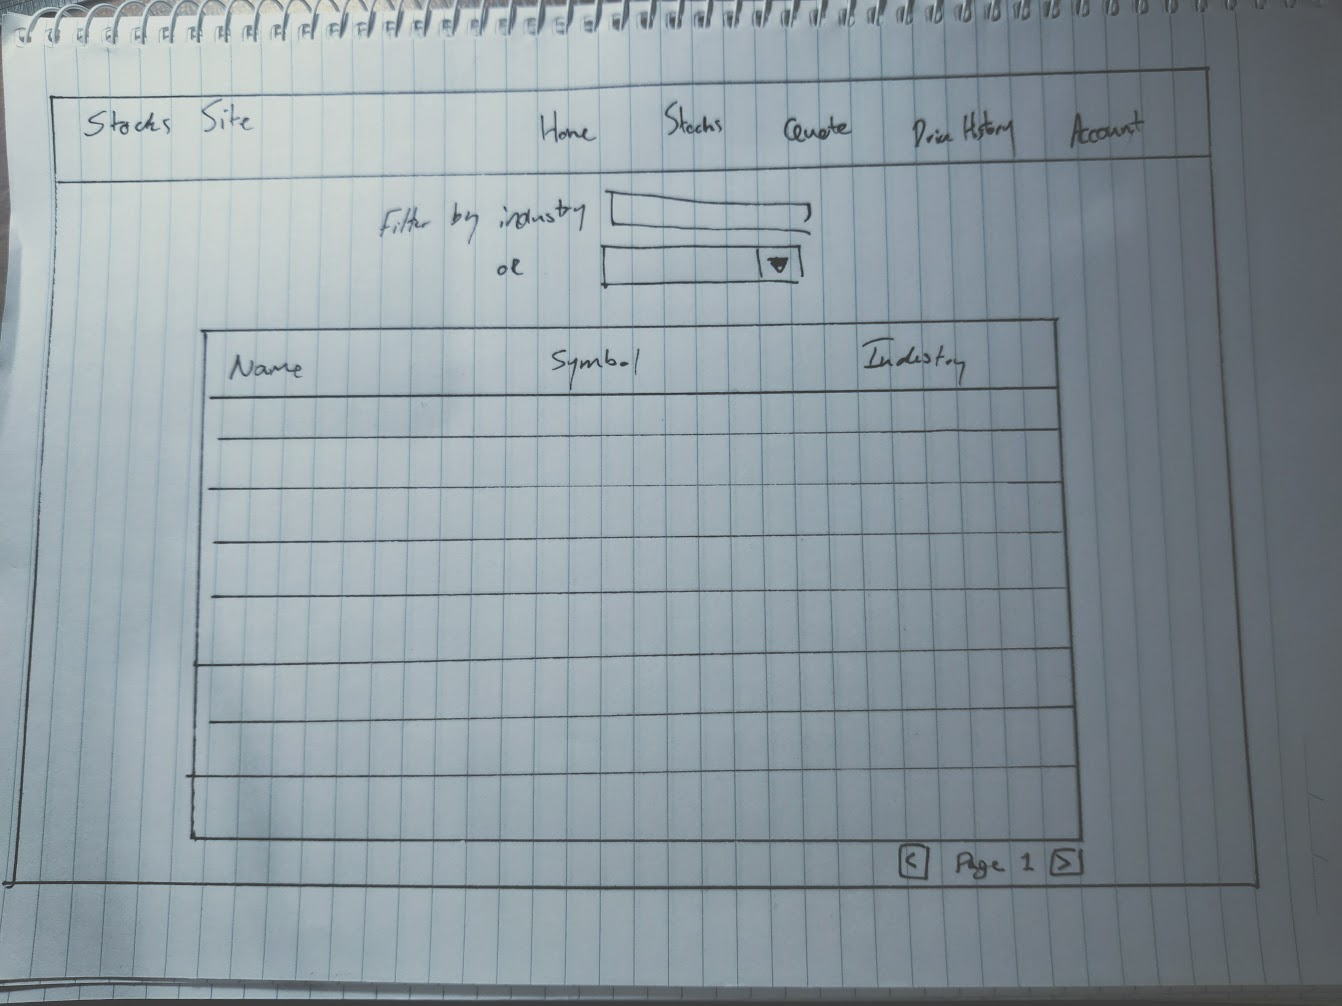 Stocks Site
Home Stocks Quote Price History Account
Filter by industry
or
Name Symbol Industry
< Page 1 >